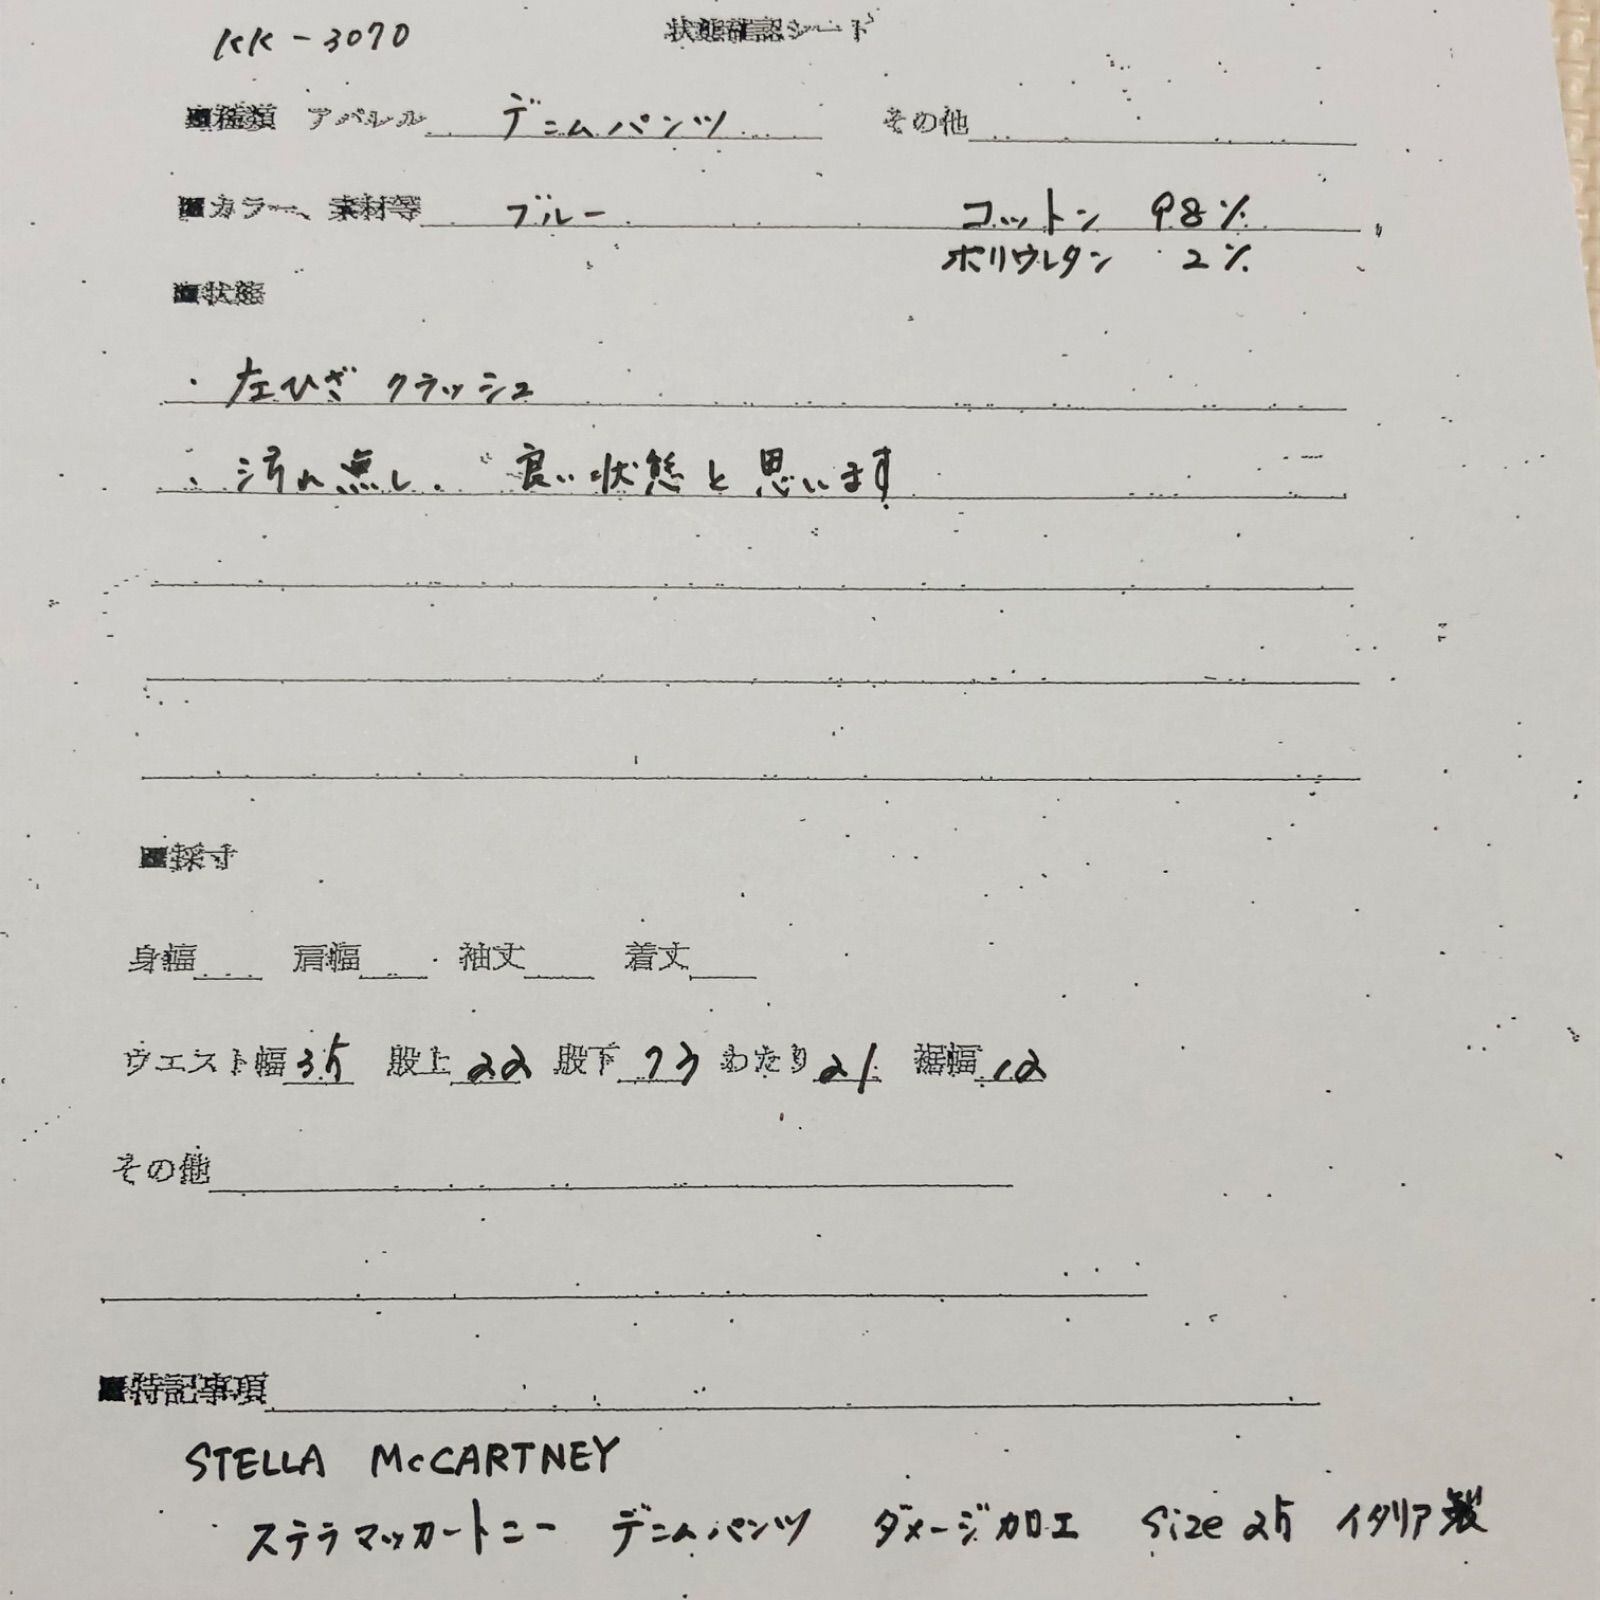 KK-3070 状態確認シート
■種類 アパレル デニムパンツ その他
■カラー、素材等 ブルー コットン 98%
ポリウレタン 2%
■状態
・左ひざ クラッシュ
・汚れ無し、良い状態と思います
■採寸
身幅 肩幅 袖丈 着丈
ウエスト幅 35 股上 22 股下 73 わたり 21 裾幅 12
その他
■特記事項
STELLA McCARTNEY
ステラマッカートニー デニムパンツ ダメージ加工 Size 25 イタリア製